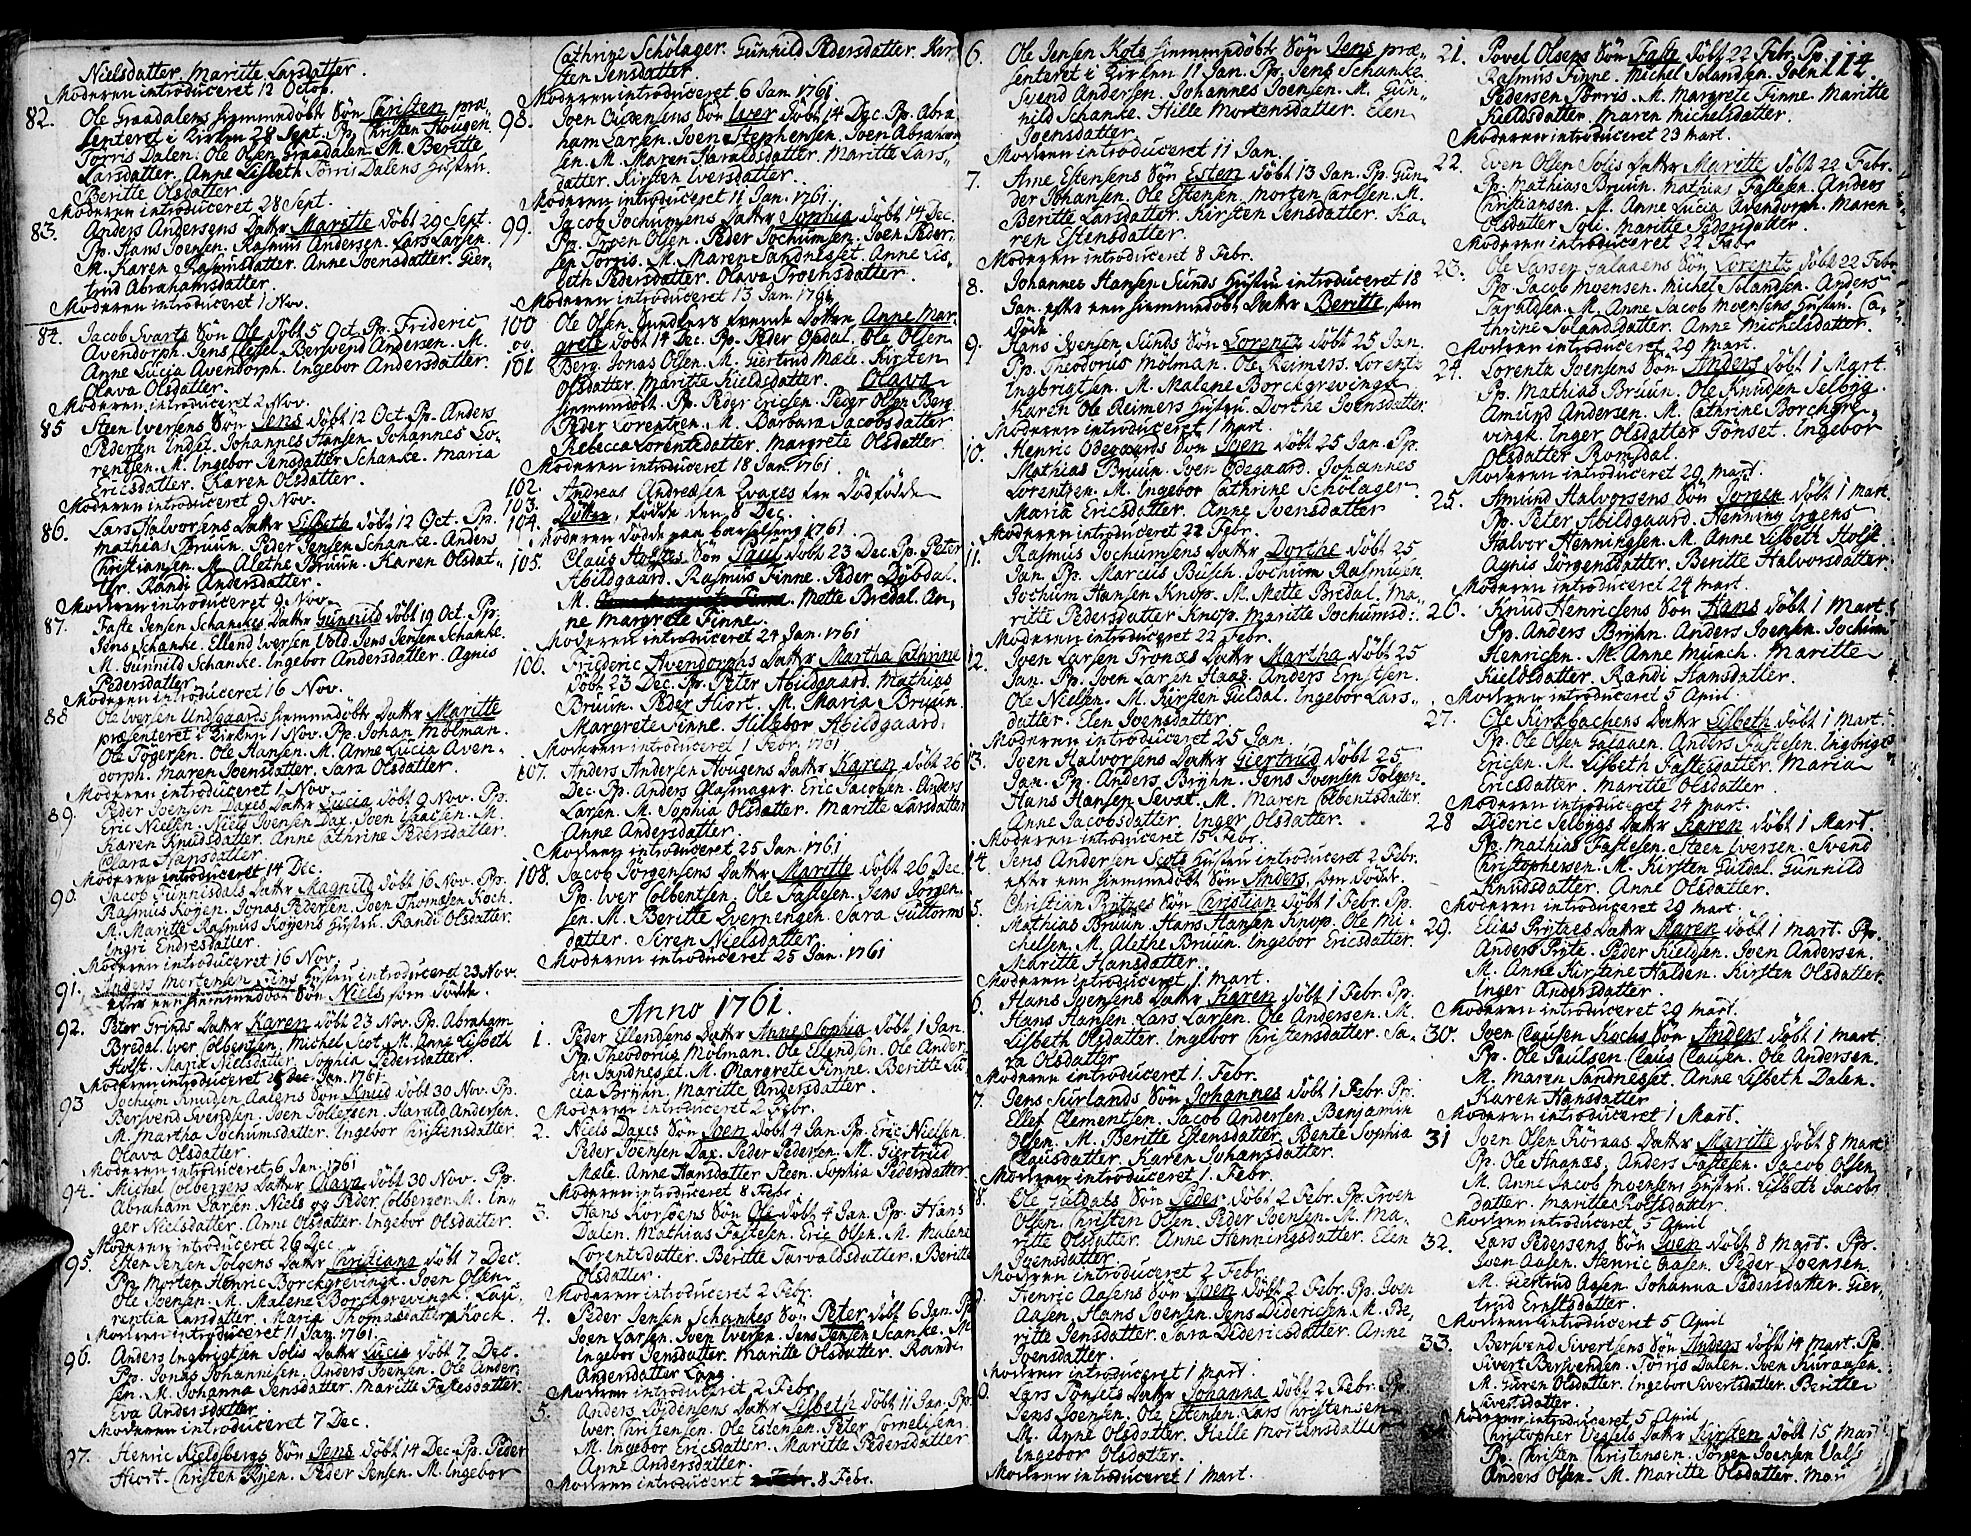 Nielsdatter. Maritte Larsdatter.
Moderen introduceret 12 Octob.
82. Ole Graadalens hiemmedöbt Sön Christen præ-
senteret i Kirken 28 Sept. Pp. Christen Hougen
Torris Dalen. Ole Olsen Graadalen. M. Beritte
Larsdatter. Anne Lisbeth Torris Dalens Hustru.
Beritte Olsdatter.
Moderen introduceret 28 Sept.
83. Anders Andersens Datter Maritte döbt 29 Sept.
Pp. Hans Joensen. Rasmus Andersen. Lars Larsen.
M. Karen Rasmusdatter. Anne Joensdatter. Gier-
trud Abrahamsdatter.
Moderen introduceret 1 Nov.
84. Jacob Svarts Sön Ole döbt 5 Oct. Pp. Frideric
Avendorph. Jens Cessel. Berswend Andersen. M.
Anne Lucia Avendorph. Ingebor Andersdatter.
Olava Olsdatter.
Moderen introduceret 2 Nov.
85 Steen Iversens Sön Jens döbt 12 Oct. Pp. Anders
Pedersen Indset. Johannes Hansen. Johannes Lo-
rentsen. M. Ingebor Jensdatter Schanke. Maria
Ericsdatter. Karen Olsdatter.
Moderen introduceret 9 Nov.
86. Lars Halvorsens Datter Lisbeth döbt 12 Oct. Pp.
Mathias Bruun. Peder Jensen Schanke. Anders
Christiansen. M. Alethe Bruun. Karen Olsdat-
ter. Randi Andersdatter.
Moderen introduceret 9 Nov.
87. Faste Jensen Schanckes Datter Gunnild döbt 19 Oct. Pp.
Jens Schanke. Ellend Iversen Vold. Jens Jensen Schanke.
M. Gunnild Schanke. Ingebor Andersdatter. Agnis
Pedersdatter.
Moderen introduceret 16 Nov.
88 Ole Iversen Undsgaards hiemmedöbte Datter Maritte
præsenteret i Kirken 1 Nov. Pp. Johan Molman.
Ole Tygersen. Ole Hansen. M. Anne Lucia Aven-
dorph. Maren Joensdatter. Sara Olsdatter.
Moderen introduceret 1 Nov.
89. Peder Joensen Daxes Datter Lucia döbt 9 Nov. Pp.
Eric Nielsen. Niels Joensen Dax. Joen Claesen. M.
Karen Knudsdatter. Anne Cathrine Pedersdatter.
Clara Hansdatter.
Moderen introduceret 14 Dec.
90. Jacob Funnisdals Datter Magnild döbt 16 Nov. Pp.
Rasmus Royen. Jonas Pedersen. Joen Thomæsen Koch.
M. Maritte Rasmus Royens Hustru. Randi Olsdatter.
Ingri Endresdatter.
Moderen introduceret 16 Nov.
91. Anders Mortensen Hustru introduceret 23 Nov.
efter een hiemmedöbt Sön Niels som döde.
92. Peter Grinds Datter Karen döbt 23 Nov. Pp. Abraham
Bredal. Iver Colbentsen. Michel Scot. M. Anne Lisbeth
Holst. Marie Nielsdatter. Sophia Pedersdatter.
Moderen introduceret Jan. 1761.
93 Jochum Knudsen Aalens Sön Knud döbt 30 Nov. Pp.
Berswend Svendsen. Joen Tollefsen. Harald Andersen.
M. Martha Jochumsdatter. Ingebor Christensdatter.
Olava Olsdatter.
Moderen introduceret 6 Jan. 1761
94. Michel Colbergens Datter Olava döbt 30 Nov. Pp.
Abraham Larsen. Niels og Peder Colbergen. M. In-
ger Nielsdatter. Anne Olsdatter. Ingebor Olsdatter.
Moderen introduceret 26 Dec.
95. Esten Jensen Tolgens Datter Christiana döbt 7 Dec.
Pp. Morten Henric Borckgrevingk. Joen Olsen.
Ole Joensen. M. Malene Borckgrevingk. Lau-
rentia Larsdatter. Maria Thomasdatter Kock.
Moderen introduceret 11 Jan. 1761.
96. Anders Ingbrigtsen Solis Datter Lucia döbt 7 Dec.
Pp. Jonas Johannisen. Anders Joensen. Ole Ander-
sen. M. Johanna Jensdatter. Maritte Fastesdatter.
Eva Andersdatter.
Moderen introduceret 7 Dec.
97. Henric Kieldsbergs Sön Jens döbt 14 Dec. Pp. Peder
Hiort. Christen Royen. Peder Jensen. M. Ingebor
Cathrine Schölager. Gunhild Pedersdatter. Kir-
sten Jensdatter.
Moderen introduceret 6 Jan. 1761
98. Joen Evensens Sön Iver döbt 14 Dec. Pp. Abra-
ham Larsen. Joen Stephensen. Joen Abraham-
sen. M. Maren Haraldsdatter. Maritte Lars-
datter. Kirsten Iversdatter.
Moderen introduceret 11 Jan. 1761.
99. Jacob Jochumsens Datter Sophia döbt 14 Dec.
Pp. Troen Olsen. Peder Jochumsen. Joen Peder-
sen Torris. M. Maren Sandnesset. Anne Lis-
beth Pedersdatter. Olava Troensdatter.
Moderen introduceret 13 Jan. 1761
100 Ole Olsen Snedkers tvende Döttre Anne Mar-
og grete döbt 14 Dec. Pp. Peder Opdal. Ole Olsen
101 Berg. Jonas Olsen. M. Giertrud Mæle. Kirsten
Olsdatter. Maritte Kieldsdatter. Olava
hiemmedöbt. Pp. Peder Ericsen. Peder Olsen Berg.
Peder Lorentzen. M. Barbara Jacobsdatter
Rebecca Lorentzdatter. Margrete Olsdatter.
Moderen introduceret 18 Jan. 1761.
102. Andreas Andreæsen Qvaxes tre Dödfödde
103. Döttre, födde den 8 Dec.
104. Moderen dödde paa barselseng 1761.
105. Claus Holtes Sön Paul döbt 23 Dec. Pp. Peter
Abildgaard. Rasmus Finne. Peder Dybdal.
M. Mette Bredal. An-
ne Margrete Finne.
Moderen introduceret 24 Jan. 1761
106. Friederic Avendorphs Datter Martha Cathrine
döbt 23 Dec. Pp. Peter Abildgaard. Mathias
Bruun. Peder Hiort. M. Maria Bruun.
Margrete Finne. Hillebor Abildgaard.
Moderen introduceret 1 Febr. 1761
107. Anders Andersen Hougens Datter Karen döbt 26
Dec. Pp. Anders Glasmager. Eric Jacobsen. Anders
Larsen. M. Sophia Olsdatter. Maritte Larsdatter
Anne Andersdatter.
Moderen introduceret 25 Jan. 1761
108. Jacob Jörgensens Datter Maritte döbt 26 Dec.
Pp. Iver Colbentsen. Ole Fastesen. Jens Jörgen-
sen. M. Beritte Qvernengen. Sara Guttorms-
datter. Siren Nielsdatter.
Moderen introduceret 25 Jan. 1761
Anno 1761.
1. Peder Ellendsens Datter Anne Sophia döbt 1 Jan.
Pp. Theodorus Molman. Ole Ellendsen. Ole Ander-
sen Sandnesset. M. Margrete Finne. Beritte Lu-
cia Bryhn. Maritte Andersdatter.
Moderen introduceret 2 Febr.
2. Niels Daxes Sön Joen döbt 4 Jan. Pp. Eric Nielsen.
Peder Joensen Dax. Peder Pedersen. M. Giertrud
Mæle. Anne Hansdatter Steen. Sophia Pedersdatter.
Moderen introduceret 8 Febr.
3. Hans Korsöens Sön Ole döbt 4 Jan. Pp. Hans
Dalen. Mathias Fastesen. Eric Olsen. M. Malene
Lorentzdatter. Beritte Tarvaldsdatter. Beritte
Olsdatter.
Moderen introduceret 2 Febr.
4. Peder Jensen Schankes Sön Peter döbt 6 Jan. Pp.
Joen Larsen. Joen Iversen. Jens Jensen Scanke. M.
Ingebor Jensdatter. Maritte Olsdatter. Randi
Andersdatter Lang.
Moderen introduceret 2 Febr.
5. Anders Lordensens Datter Lisbeth döbt 11 Jan. Pp.
Iver Christensen. Ole Estensen. Peter Cornelisen.
M. Ingebor Ericsdatter. Maritte Pedersdatter
Anne Andersdatter.
Moderen introduceret 8 Febr.
6. Ole Jensen Kots hiemmedöbt Sön Jens præ-
senteret i Kirken 11 Jan. Pp. Jens Schanke.
Svend Andersen. Johannes Joensen. M. Gun-
nild Schanke. Hille Mortensdatter. Elen
Joensdatter.
Moderen introduceret 11 Jan.
7. Arne Estensens Sön Esten döbt 13 Jan. Pp. Gun-
der Johansen. Ole Estensen. Morten Carlsen. M.
Beritte Larsdatter. Kirsten Jensdatter. Ka-
ren Estensdatter.
Moderen introduceret 8 Febr.
8. Johannes Hansen Sunds Hustru introduceret 18
Jan. efter een hiemmedöbt Datter Beritte, som
döde.
9. Hans Joensen Sunds Sön Lorentz döbt 25 Jan.
Pp. Theodorus Molman. Ole Reimers. Lorentz
Ingbrigtsen. M. Malene Borckgrevingk
Karen Ole Reimers Hustru. Dorthe Joensdatter.
Moderen introduceret 1 Mart.
10. Henric Ödegaards Sön Joen döbt 25 Jan. Pp.
Mathias Bruun. Joen Ödegaard. Johannes
Lorentzen. M. Ingebor Cathrine Schölager.
Maria Ericsdatter. Anne Svensdatter
Moderen introduceret 22 Febr.
11. Rasmus Jochumsens Datter Dorthe döbt 25
Jan. Pp. Marcus Busch. Jochum Rasmusen.
Jochum Hansen Knop. M. Mette Bredal. Ma-
ritte Pedersdatter Knop. Maritte Jochumsd:.
Moderen introduceret 22 Febr.
12. Joen Larsen Trönæs Datter Martha döbt 25
Jan. Pp. Joen Larsen Haas. Anders Ernstsen.
Ole Nielsen. M. Kirsten Guldal. Ingebor Lars-
datter. Elen Joensdatter.
Moderen introduceret 25 Jan.
13. Joen Halvorsens Datter Giertrud döbt 25
Jan. Pp. Anders Bryhn. Jens Joensen Tolgen.
Hans Hansen Sevat. M. Maren Colbentsdatter.
Anne Jacobsdatter. Inger Olsdatter.
Moderen introduceret 15 Febr.
14. Jens Andersen Scots Hustru introduceret 2 Febr.
efter een hiemmedöbt Sön Anders, som dödde.
5. Christian Prytzes Sön Christian döbt 1 Febr. Pp.
Mathias Bruun. Hans Hansen Knop. Ole Mi-
chelsen. M. Alethe Bruun. Ingebor Ericsdatter.
Maritte Hansdatter.
Moderen introduceret 1 Mart.
6. Hans Joensens Datter Karen döbt 1 Febr. Pp.
Hans Hansen. Lars Larsen. Ole Andersen. M.
Lisbeth Olsdatter. Ingebor Christensdatter. Sa-
ra Olsdatter
Moderen introduceret 1. Febr.
7. Jens Surlands Sön Johannes döbt 1 Febr. Pp.
Ellef Clementsen. Jacob Andersen. Benjamin
Olsen. M. Beritte Estensdatter. Bente Sophia
Clausdatter. Karen Johansdatter.
Moderen introduceret 1. Febr.
8. Ole Guldals Sön Peder döbt 2 Febr. Pp. Troen
Olsen. Christen Olsen. Peder Joensen. M. Ma-
ritte Olsdatter. Anne Henningsdatter. Elen
Joensdatter
Moderen introduceret 2 Febr.
Henric Aasens Sön Joen döbt 2 Febr. Pp. Joen
Aasen. Hans Joensen. Jens Didericsen. M. Be-
ritte Jensdatter. Sara Didericsdatter. Anne
Joensdatter.
Moderen introduceret 1 Mart.
0. Lars Tönsets Datter Johanna döbt 2 Febr. Pp.
Jens Joensen. Ole Estensen. Lars Christensen
M. Anne Olsdatter. Helle Mortensdatter
Ingebor Olsdatter.
Moderen introduceret 1 Mart.
114.
21. Povel Olsens Sön Faste döbt 22 Febr. Pp.
Rasmus Finne. Michel Solandsen. Joen
Pedersen Torris. M. Margrete Finne. Maritte
Kieldsdatter. Maren Michelsdatter.
Moderen introduceret 23 Mart.
22. Even Olsen Solis Datter Maritte döbt 22 Febr.
Pp. Mathias Bruun. Mathias Fastesen. Anders
Christiansen. M. Anne Lucia Avendorph. Maren
Olsdatter Soli. Maritte Pedersdatter.
Moderen introduceret 22 Febr.
23. Ole Larsen Galaaens Sön Lorentz döbt 22 Febr.
Pp. Jacob Moensen. Michel Solandsen. Anders
Taraldsen. M. Anne Jacob Moensens Hustru. Ca-
thrine Solandsdatter. Anne Michelsdatter.
Moderen introduceret 29 Mart.
24. Lorentz Joensens Sön Anders döbt 1 Mart.
Pp. Mathias Bruun. Ole Knudsen Selbyg.
Amund Andersen. M. Cathrine Borchgre-
vingk. Inger Olsdatter Tönset. Ingebor
Olsdatter Romsdal.
Moderen introduceret 29 Mart.
25. Amund Halvorsens Sön Jörgen döbt 1 Mart.
Pp. Peter Abildgaard. Henning Irgens
Halvor Henningsen. M. Anne Lisbeth Holst
Agnis Jörgensdatter. Beritte Halvorsdatter.
Moderen introduceret 24 Mart.
26. Knud Henricsens Sön Hans döbt 1 Mart.
Pp. Anders Bryhn. Anders Joensen. Jochum
Henricsen. M. Anne Munch. Maritte
Kieldsdatter. Randi Hansdatter.
Moderen introduceret 5 April.
27. Ole Kirkbachens Datter Lisbeth döbt 1 Mart.
Pp. Ole Olsen Galaaen. Anders Fastesen. Ingbrigt
Ericsen. M. Lisbeth Fastesdatter. Maria
Ericsdatter. Maritte Olsdatter.
Moderen introduceret 24 Mart.
28 Dideric Selbygs Datter Karen döbt 1 Mart.
Pp. Mathias Fastesen. Steen Iversen. Svend
Christophersen. M. Kirsten Guldal. Gunnild
Knudsdatter. Anne Olsdatter.
Moderen introduceret 29 Mart.
29. Elias Prytzes Datter Maren döbt 1 Mart. Pp.
Anders Pryts. Peder Kieldsen. Joen Andersen.
M. Anne Kirstine Halden. Kirsten Olsdatter.
Inger Andersdatter.
Moderen introduceret 29 Mart.
30. Joen Clausen Kochs Sön Anders döbt 1 Mart.
Pp. Ole Poulsen. Claus Clausen. Ole Andersen.
M. Maren Sandnesset. Anne Lisbeth Dalen.
Karen Hansdatter
Moderen introduceret 1 Mart.
31 Joen Olsen Körnæs Datter Maritte döbt 8 Mart
Pp. Ole Hnanæs. Anders Fastesen. Jacob Olsen
M. Anne Jacob Moensens Hustru. Lisbeth Jacobs-
datter. Maritte Rolfsdatter.
Moderen introduceret 5 April
32. Lars Pedersens Sön Joen döbt 8 Mart. Pp.
Joen Aasen. Henric Aasen. Peder Joensen.
M. Giertrud Aasen. Johanna Pedersdatter. Gier-
trud Ernstsdatter.
Moderen introduceret 5 April
33. Berswend Sivertsens Sön Anders döbt 14 Mart. Pp.
Sivert Berswendsen. Torris Dalen. Joen Kuraasen.
M. Guren Olsdatter. Ingebor Sivertsdatter. Beritte
Sivertsdatter.
Moderen introduceret 5 April
Christopher Vessels Datter Kirsten döbt 15 Mart
Pp. Christen Christensen. Jörgen Joensen Vals
Anders Olsen. M. Maritte Olsdatter. Mar